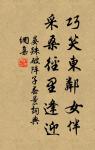 巧笑東鄰女伴
采桑徑里逢迎
晏殊破陣子春景詞典
網集